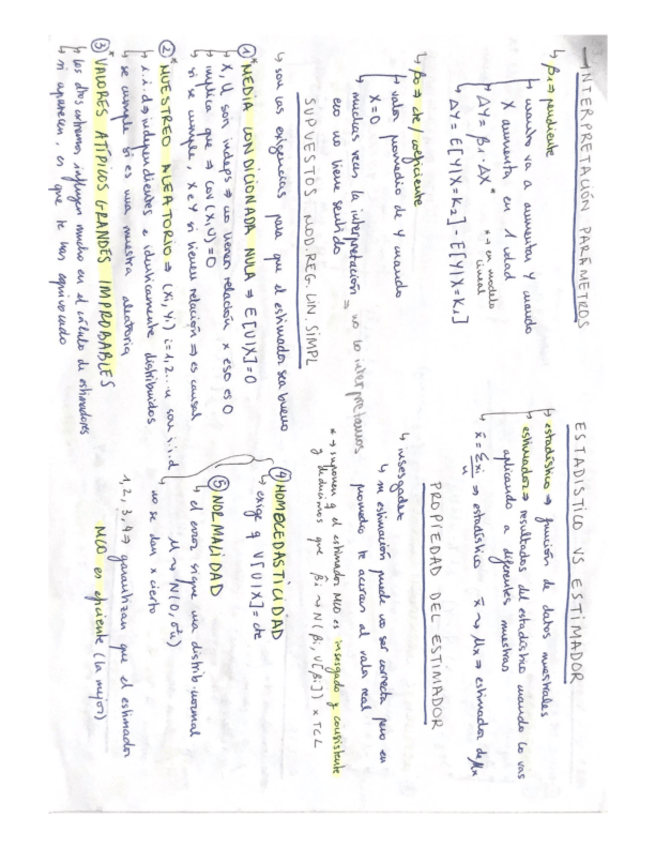 INTERPRETACIÓN PARÁMETROS
↳ β₁ ⇒ pendiente
↳ cuando va a aumentar Y cuando
X aumenta en 1 udad
↳ ΔY = β₁ · ΔX *
* → en modelo
lineal
↳ ΔY = E[Y|X=K₂] - E[Y|X=K₁]
↳ β₀ ⇒ cte / coeficiente
↳ valor promedio de Y cuando
X = 0
↳ muchas veces la interpretación ⇒ no lo interpretamos
eco no tiene sentido
SUPUESTOS MOD. REG. LIN. SIMPL
↳ son las exigencias para que el estimador sea bueno
① * MEDIA CONDICIONADA NULA ⇒ E[U|X]=0
↳ X, U son indeps ⇒ no tienen relación x eso es 0
↳ implica que ⇒ cov(X,U)=0
↳ si se cumple, X e Y si tienen relación ⇒ es causal
② * MUESTREO ALEATORIO ⇒ (Xi, Yi) i=1,2...n son i.i.d
↳ i.i.d ⇒ independientes e idénticamente distribuidos
↳ se cumple si es una muestra aleatoria
③ * VALORES ATÍPICOS GRANDES IMPROBABLES
↳ los ptos extremos influyen mucho en el cálculo de estimadores
↳ si aparecen, es que te has equivocado
ESTADÍSTICO VS ESTIMADOR
↳ estadístico ⇒ función de datos muestrales
↳ estimador ⇒ resultados del estadístico cuando lo vas
aplicando a diferentes muestras
↳ x̄ = Σxi/n ⇒ estadístico x̄ ⇝ μx ⇒ estimador de μx
PROPIEDAD DEL ESTIMADOR
↳ insesgadez
↳ mi estimación puede no ser correcta pero en
promedio te acercan al valor real
* → suponen q el estimador MCO es insesgado y consistente
y deducimos que β̂i ⇝ N(βi, V[β̂i]) x TCL
④ HOMOCEDASTICIDAD
↳ exige q V[U|X] = cte
⑤ NORMALIDAD
↳ el error sigue una distrib. normal
U ⇝ N(0, σ²u)
no se dan x cierto
1, 2, 3, 4 ⇒ garantizan que el estimador
MCO es eficiente (la mejor)